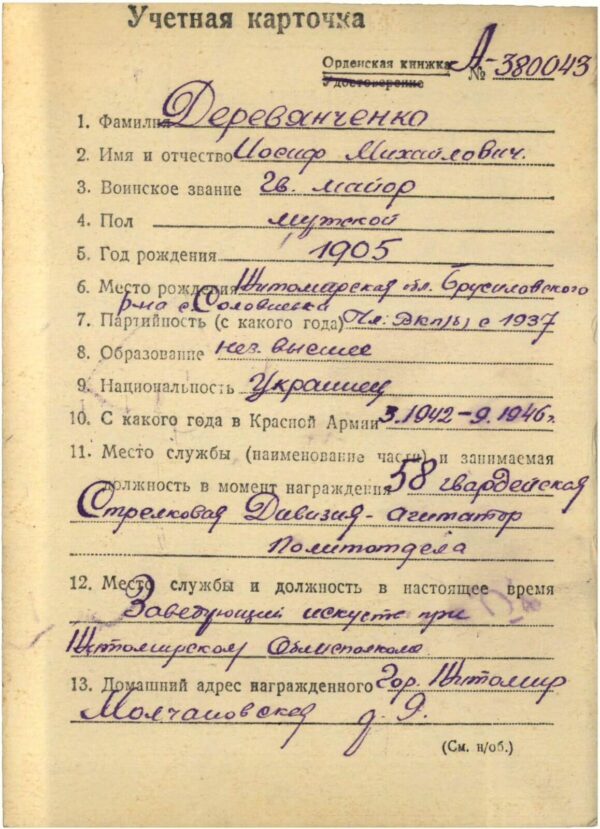 Учетная карточка
Орденская книжка А
Удостоверение № -380043
1. Фамилия Деревянченко
2. Имя и отчество Иосиф Михайлович.
3. Воинское звание Гв. майор
4. Пол мужской
5. Год рождения 1905
6. Место рождения Житомирская обл. Брусиловского
р-на с. Соловиевка
7. Партийность (с какого года) Чл. ВКП(б) с 1937
8. Образование нез. высшее
9. Национальность Украинец
10. С какого года в Красной Армии 3.1942-9.1946г.
11. Место службы (наименование части) и занимаемая
должность в момент награждения 58 гвардейская
Стрелковая Дивизия - агитатор
политотдела
12. Место службы и должность в настоящее время
Заведующий искуств при
Житомирском Облисполкоме
13. Домашний адрес награжденного Гор. Житомир
Молчановская д. 9.
(См. н/об.)